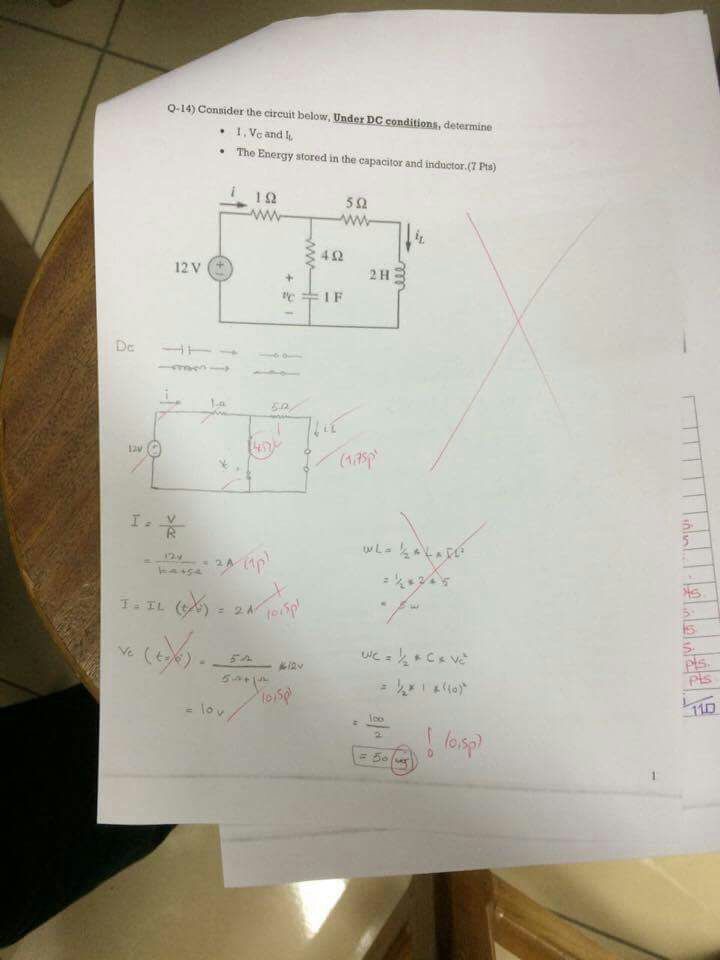 Q-14) Consider the circuit below, Under DC conditions, determine
• I, VC and IL
• The Energy stored in the capacitor and inductor.(7 Pts)
i
1 Ω
5 Ω
iL
12 V
4 Ω
2 H
+
vC
1 F
−
DC
i
1Ω
5Ω
12V
4Ω
iL
(1,75p)
I = V/R
= 12V / = 2A (1p)
I = IL = 2A (0,5p)
Vc = 5Ω / 5Ω+1Ω * 12V
= 10V (0,5p)
WL = 1/2 * L * IL²
= 1/2 * 2 * 5
= 5W
WC = 1/2 * C * Vc²
= 1/2 * 1 * (10)²
= 100/2
= 50
! (0,5p)
1
5
pts.
pts.
110